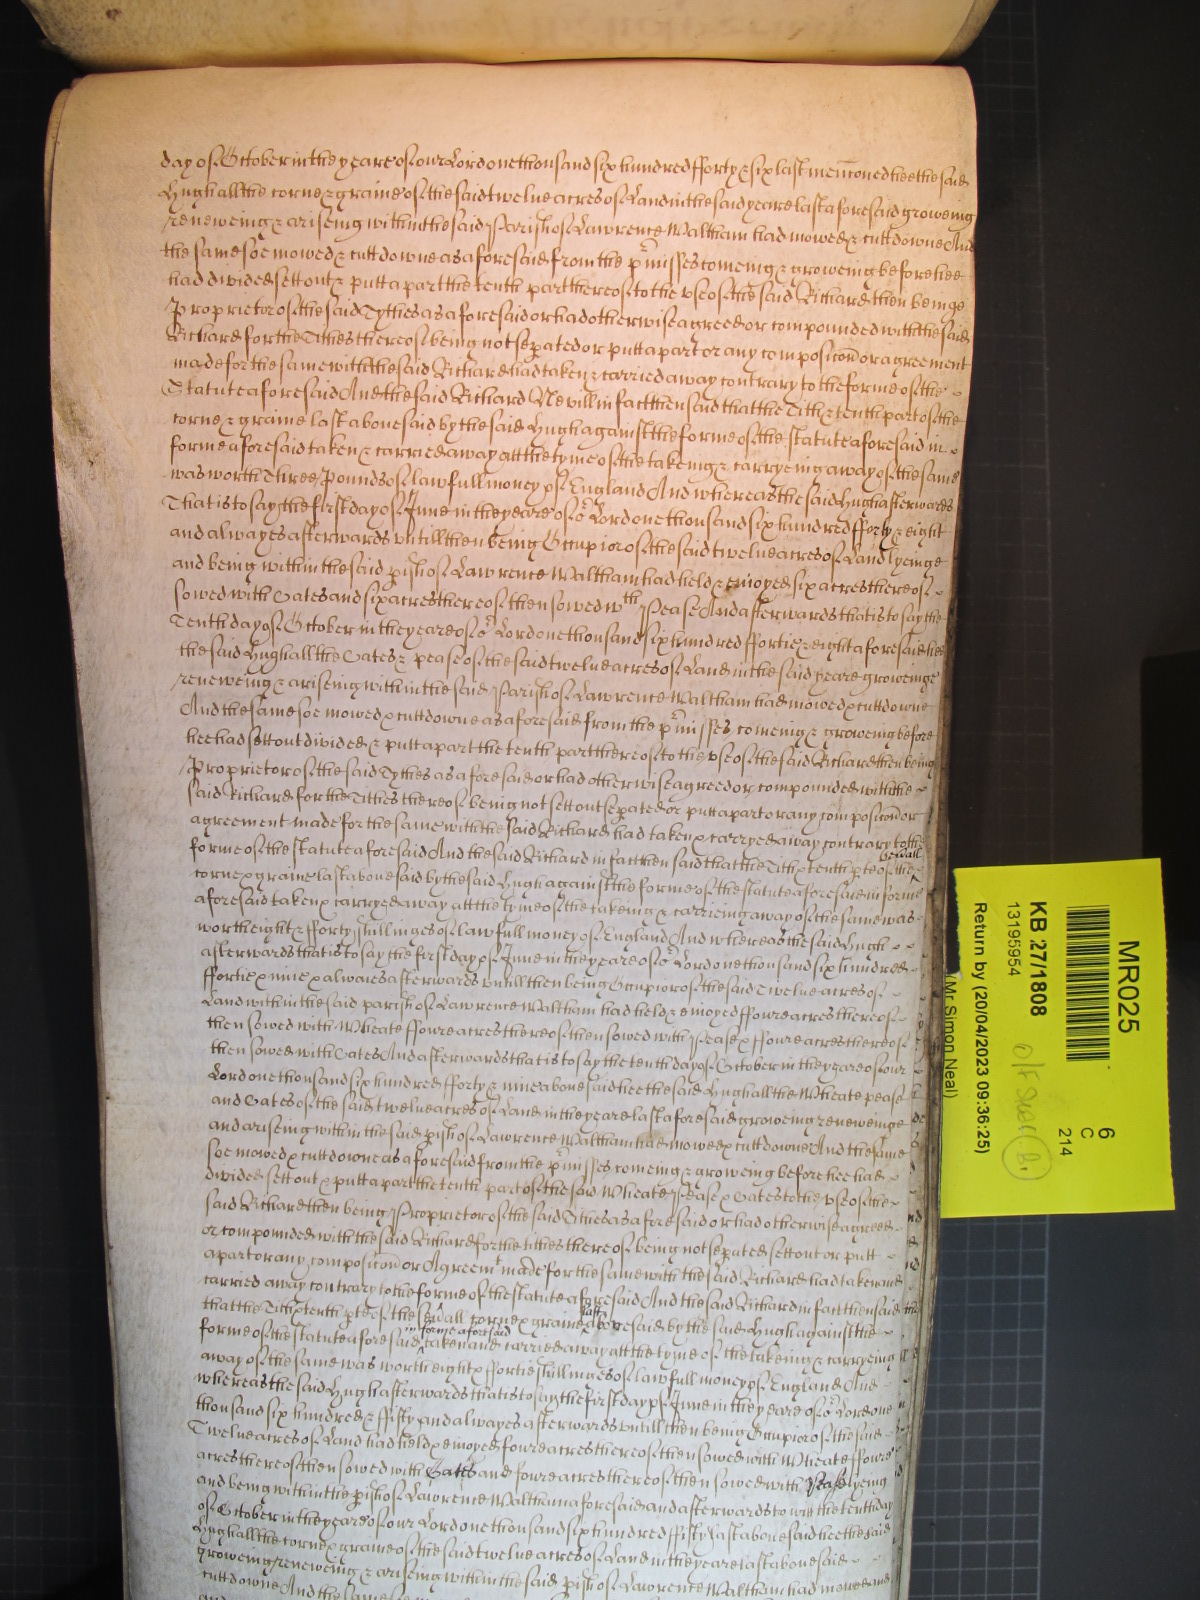 day of October in the yeare of our Lord one thousand six hundred fforty & six last menconed hee the said
Hugh all the corne & graine of the said twelve acres of Land in the said yeare last aforesaid groweing
reneweing & ariseing within the said Parish of Lawrence Waltham had mowed & cutt downe And
the same soe mowed & cutt downe as aforesaid from the pmisses comeing & groweing before hee
had divided sett out & putt apart the tenth part thereof to the vse of the said Richard then beinge
Proprietor of the said Tythes as aforesaid or had otherwise agreed or compounded with the said
Richard for the Tithes thereof being not sepated or putt apart or any composicon or agreement
made for the same with the said Richard had taken & carried away contrary to the forme of the
Statute aforesaid And the said Richard Nevill in fact then said that the Tith & tenth part of the
corne & graine last abovesaid by the said Hugh against the forme of the statute aforesaid in
forme aforesaid taken & carried away att the tyme of the takeing & carryeing away of the same
was worth Three Pounds of lawfull money of England And whereas the said Hugh afterwards
That is to say the first day of June in the yeare of or Lord one thousand six hundred fforty & eight
and alwayes afterwards vntill then being Occupior of the said twelve acres of Land lyeinge
and being within the said pish of Lawrence Waltham had held & enioyed six acres thereof
sowed with Oates and six acres thereof then sowed wth Pease And afterwards that is to say the
Tenth day of October in the yeare of or Lord one thousand six hundred ffortie & eight aforesaid hee
the said Hugh all the Oates & pease of the said twelve acres of Land in the said yeare groweinge
renewing & ariseing within the said Parish of Lawrence Waltham had mowed & cutt downe
And the same soe mowed & cutt downe as aforesaid from the pmisses comeing & groweing before
hee had sett out divided & putt apart the tenth part thereof to the vse of the said Richard then being
Proprietor of the said Tythes as aforesaid or had otherwise agreed or compounded with the
said Richard for the Tithes thereof being not sett out sepated or putt apart or any composicon or
agreement made for the same with the said Richard had taken & carryed away contrary to the
forme of the statute aforesaid And the said Richard in fact then said that the Tith & tenth pte of the
corne & graine last abovesaid by the said Hugh against the forme of the statute aforesaid in forme
aforesaid taken & carryed away att the tyme of the takeing & carrieing away of the same was
worth eight & fforty shillinges of lawfull money of England And whereas the said Hugh
afterwards that is to say the first day of June in the yeare of or Lord one thousand six hundred
ffortie & nine & alwaies afterwards vntill then being Occupior of the said Twelve acres of
Land within the said parish of Lawrence Waltham had held & enioyed ffoure acres thereof
then sowed with Wheate ffoure acres thereof then sowed with Pease & ffoure acres thereof
then sowed with Oates And afterwards that is to say the tenth day of October in the yeare of our
Lord one thousand six hundred fforty & nine abovesaid hee the said Hugh all the Wheate pease
and Oates of the said twelve acres of Land in the yeare last aforesaid groweing reneweinge
and ariseing within the said pish of Lawrence Waltham had mowed & cutt downe And the same
soe mowed & cutt downe as aforesaid from the pmisses comeing & groweing before hee had
divided sett out & putt apart the tenth part of the said Wheate Pease & Oates to the vse of the
said Richard then being Proprietor of the said Tithes as aforesaid or had otherwise agreed
or compounded with the said Richard for the tithes thereof being not sepated sett out or putt
apart or any composicon or Agreemt made for the same with the said Richard had taken and
carried away contrary to the forme of the statute aforesaid And the said Richard in fact then said
last
that the Tith & tenth pte of the sevall corne & graine abovesaid by the said Hugh against the
in forme aforesaid
forme of the statute aforesaid taken and carried away att the tyme of the takeing & carryeing
away of the same was worth eight & ffortie shillinges of lawfull money of England And
whereas the said Hugh afterwards that is to say the first day of June in the yeare of or Lord one
thousand six hundred & ffifty and alwayes afterwards vntill then being Occupior of the said
Twelve acres of Land had held & enioyed foure acres thereof then sowed with Wheate ffoure
acres thereof then sowed with Oates and foure acres thereof then sowed with Pease lyeing
and being within the pish of Lawrence Waltham aforesaid and afterwards to witt the tenth day
of October in the yeare of our Lord one thousand six hundred ffifty last abovesaid hee the said
Hugh all the corne & graine of the said twelve acres of Land in the yeare last abovesaid
groweing renewing & ariseing within the said pish of Lawrence Waltham had mowed and
cutt downe And the same soe
MR025
6
C
214
KB 27/1808
13195954
Return by (20/04/2023 09:36:25)
(Mr Simon Neal)